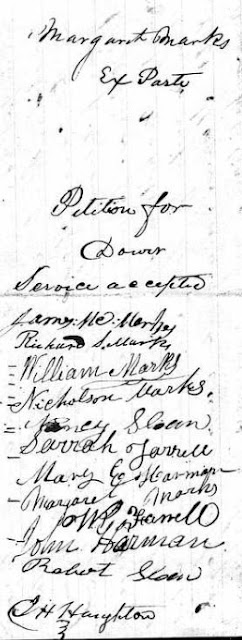 Margaret Marks
Ex Parte
Petition for
Dower
Service accepted
James Mc. Marks
Richard S. Marks
William Marks
Nicholson Marks.
Nancy Sloan
Sarrah Farrell
Mary E Harman
Margaret Marks
Farrell
John Harman
Robert Sloan
Haughton